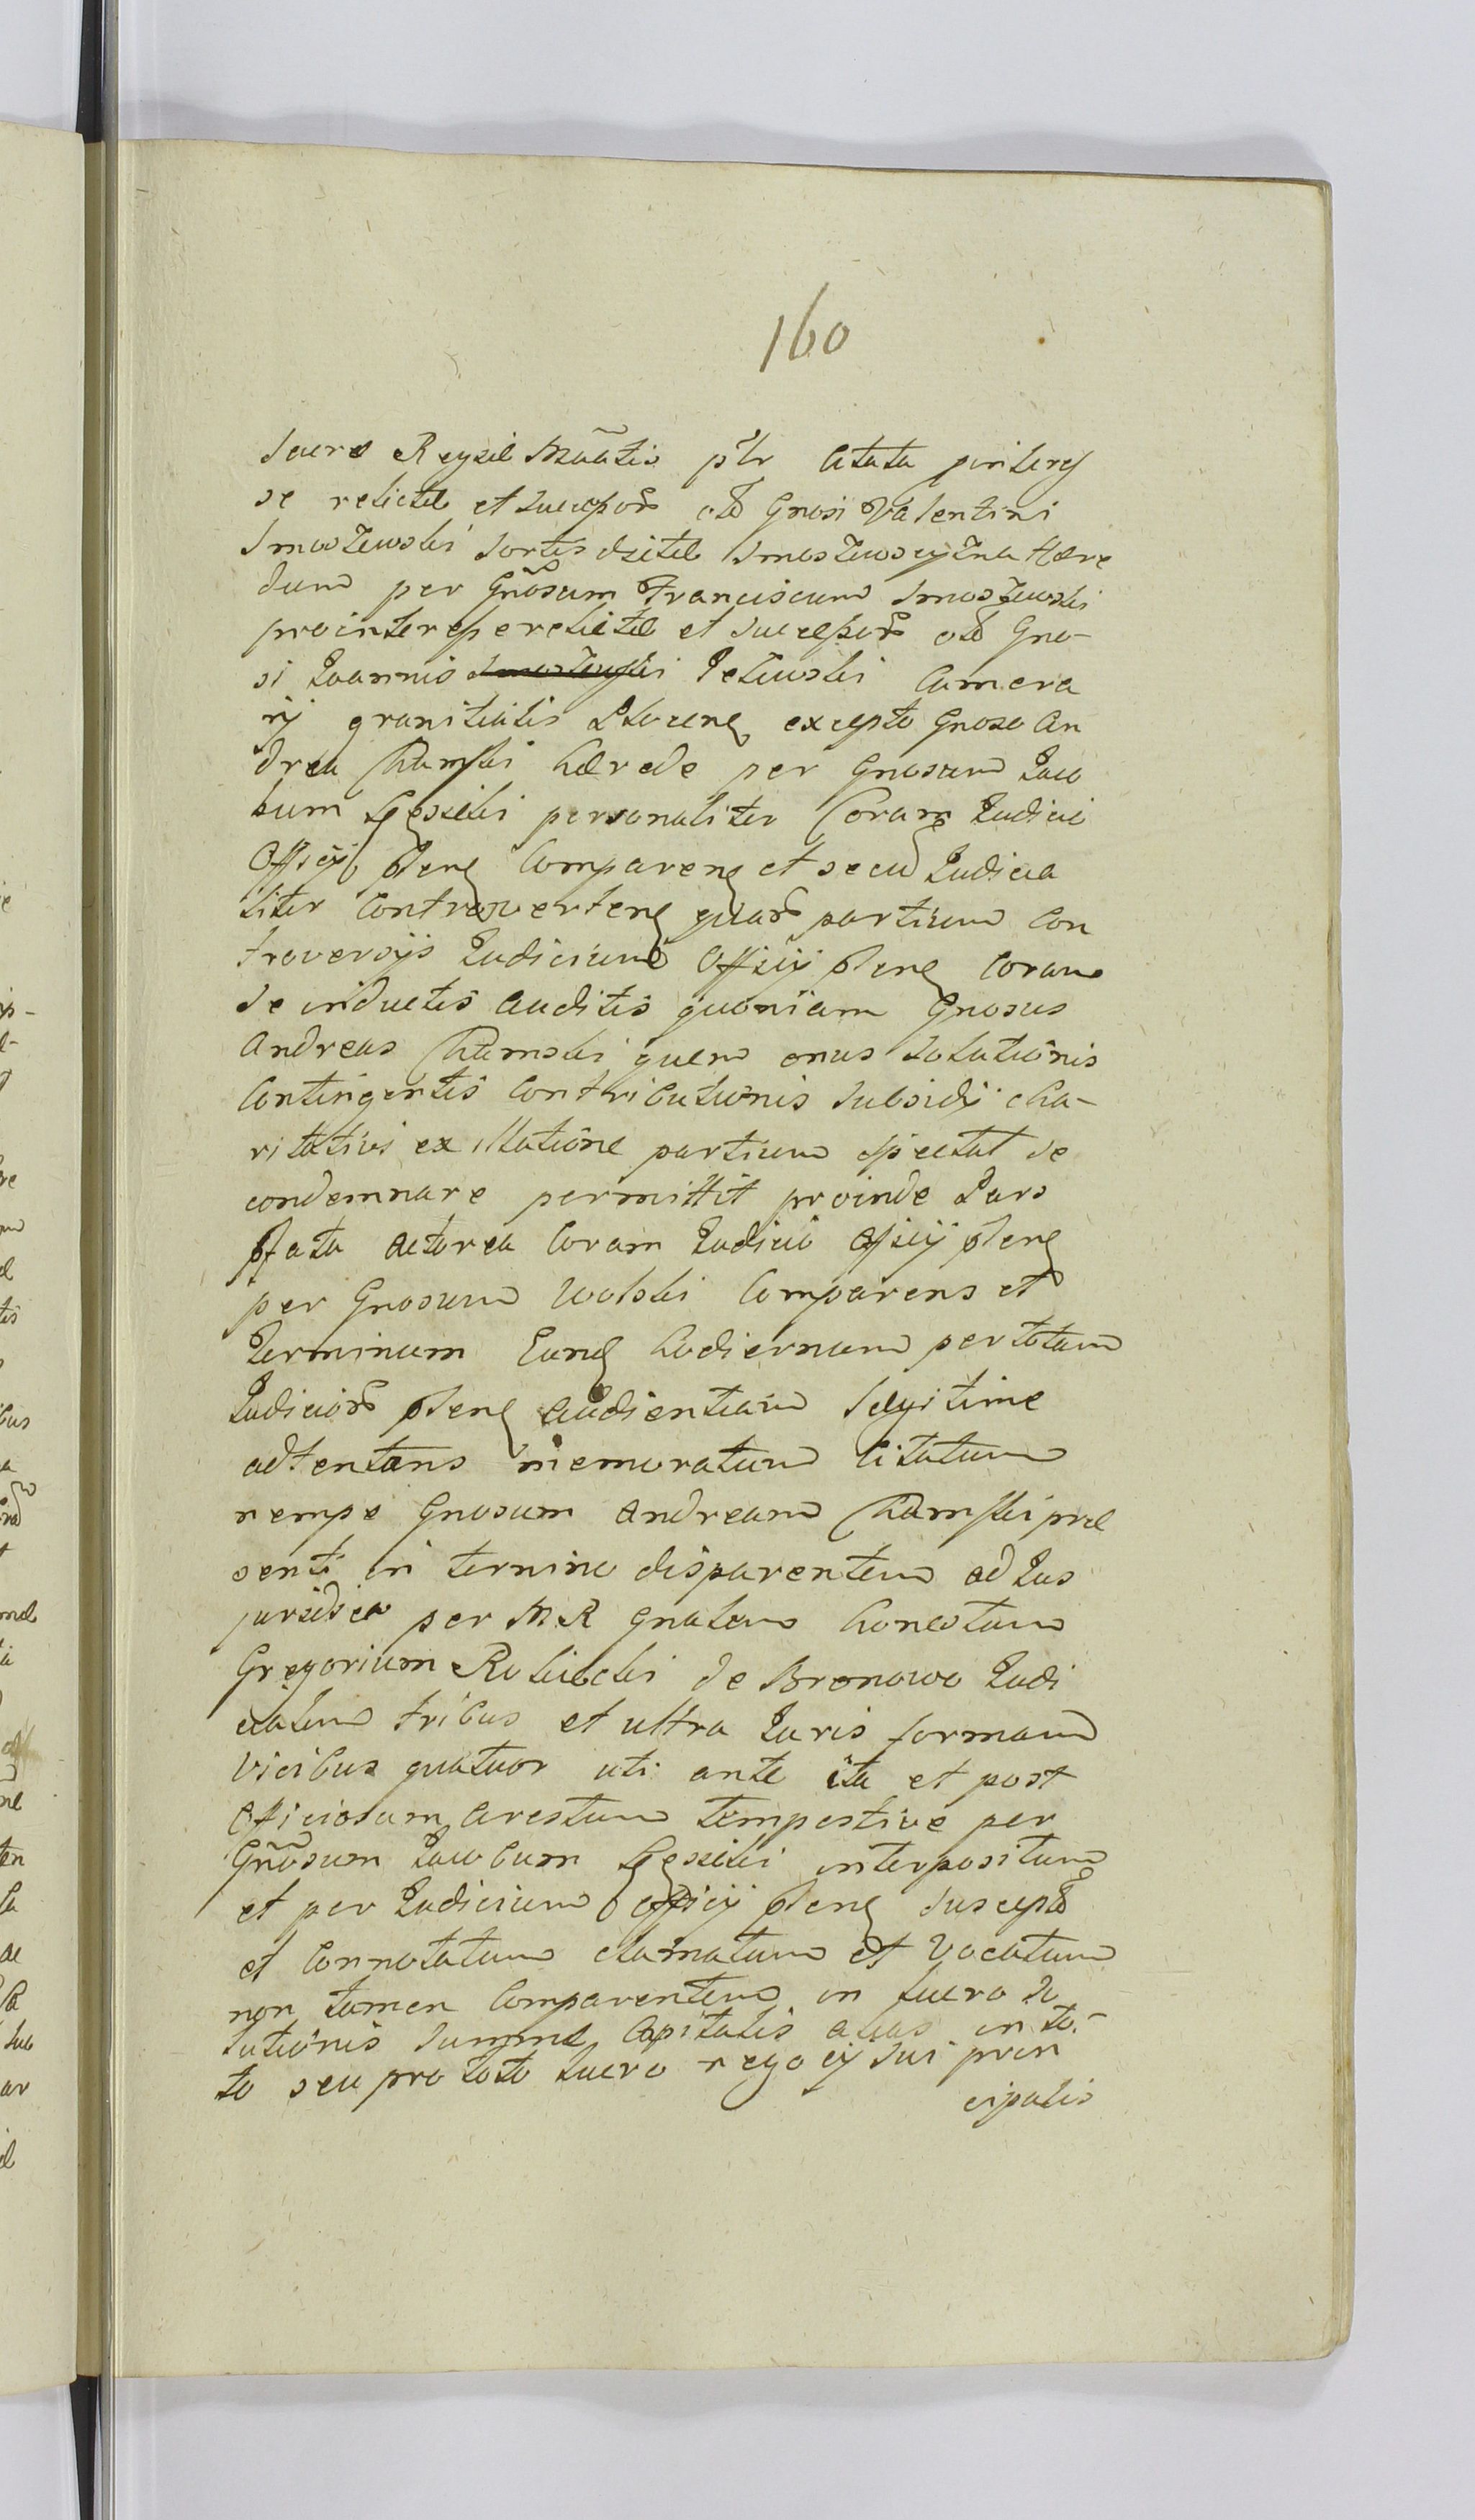 160
Sacra Regia Mãatis ptr Citata pro interes
se relictae et Succesor olo Gnosi Valentini
Smoszewski Sortis dictae Smoszewszczyzna Hære
dum per Gnõsum Franciscum Smoszewski
pro interesse relictae et Succesor olo Gno-
si Joannis Smoszewski Zelewski Camera
rij granitialis Plocen excepto Gnoso An
drea Chamski hærede per Gnosum Jaco
bum personaliter Coram Judicio
Officij pten Comparen et secu Judicia
liter Controverten quar partium Con
troversijs Judicium Officij pten Coram
se inductis auditis quoniam Gnosus
Andreas Chamski quem onus Solutionis
Contingentis Contributionis Subsidij Cha-
ritativi ex illatione partium spectat se
condemnare permittit proinde Pars
pfata actorea Coram Judicio Officij pten
per Gnosum Wolski Comparens et
Terminum hodiernum per totam
Judicior pten audientiam legitime
adtentans memoratum Citatum
nempe Gnosum Andream Chamski præ
senti in termino disparentem ad Jus
per M R gnalem honestum
Gregorium de Bronowo Judi
cialem tribus et ultra Juris formam
Vicibus quatuor uti ante ita et post
Officiosum arestum tempestive per
Gnõsum Jacobum interpositum
et per Judicium Officij pten Suscept
et Connotatum clamatum et Vocatum
non tamen Comparentem in lucro So
lutionis Summae Capitalis alias in to-
to seu pro toto lucro negocij Sui prin
cipalis